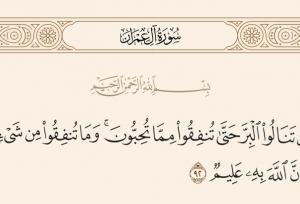 سُورَةُ آلِ عِمْرَانَ
بِسْمِ اللَّهِ الرَّحْمَٰنِ الرَّحِيمِ
تَنَالُوا۟ ٱلْبِرَّ حَتَّىٰ تُنفِقُوا۟ مِمَّا تُحِبُّونَ ۚ وَمَا تُنفِقُوا۟ مِن
ٱللَّهَ بِهِۦ عَلِيمٌ ٩٢